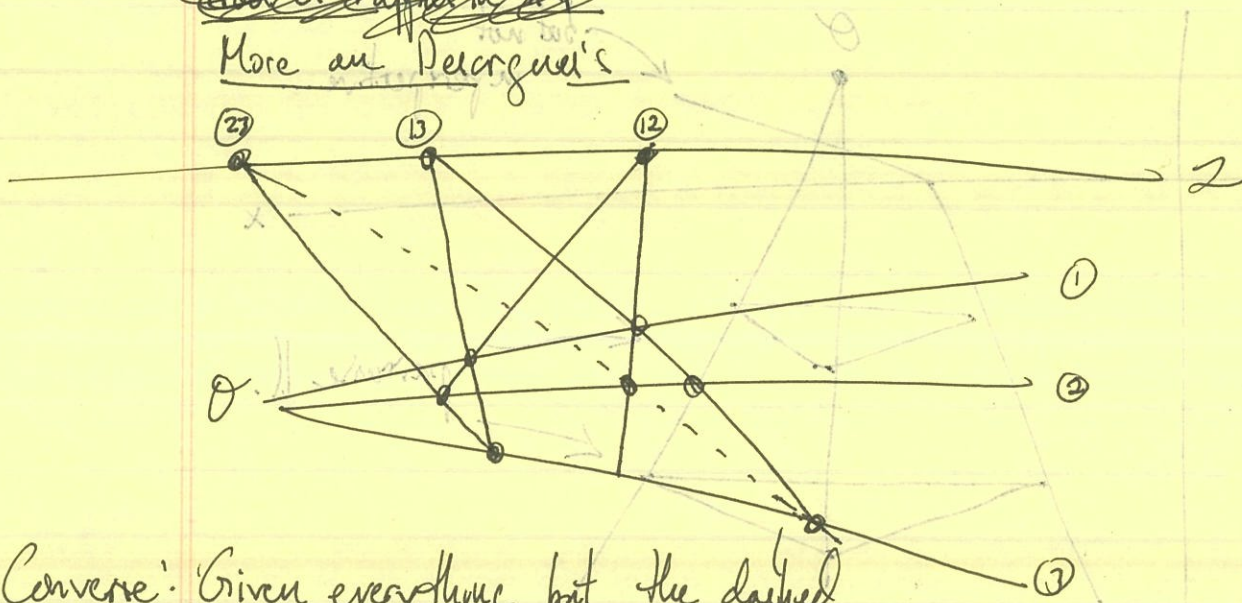 More on Desargues's
23 13 12
2
1
O 2
3
Converse: Given everything but the dashed